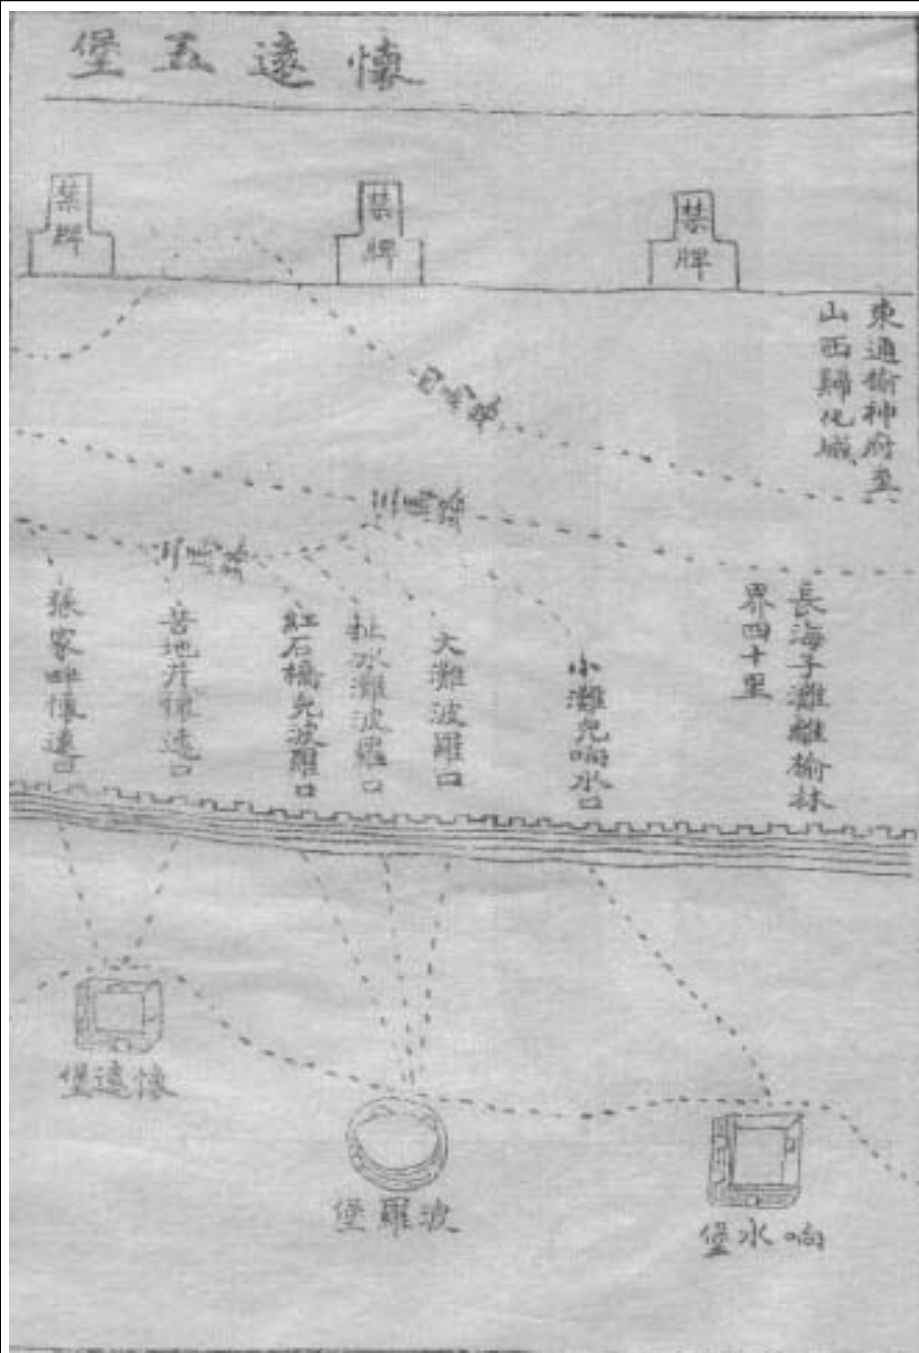 懷遠五堡
禁牌
禁牌
禁牌
東通榆神府至
山西歸化城
長海子灘離榆林
界四十里
小灘児响水口
大灘波羅口
扯水灘波羅口
紅石橋児波羅口
苦地井懷遠口
張家畔懷遠口
响水堡
波羅堡
懷遠堡